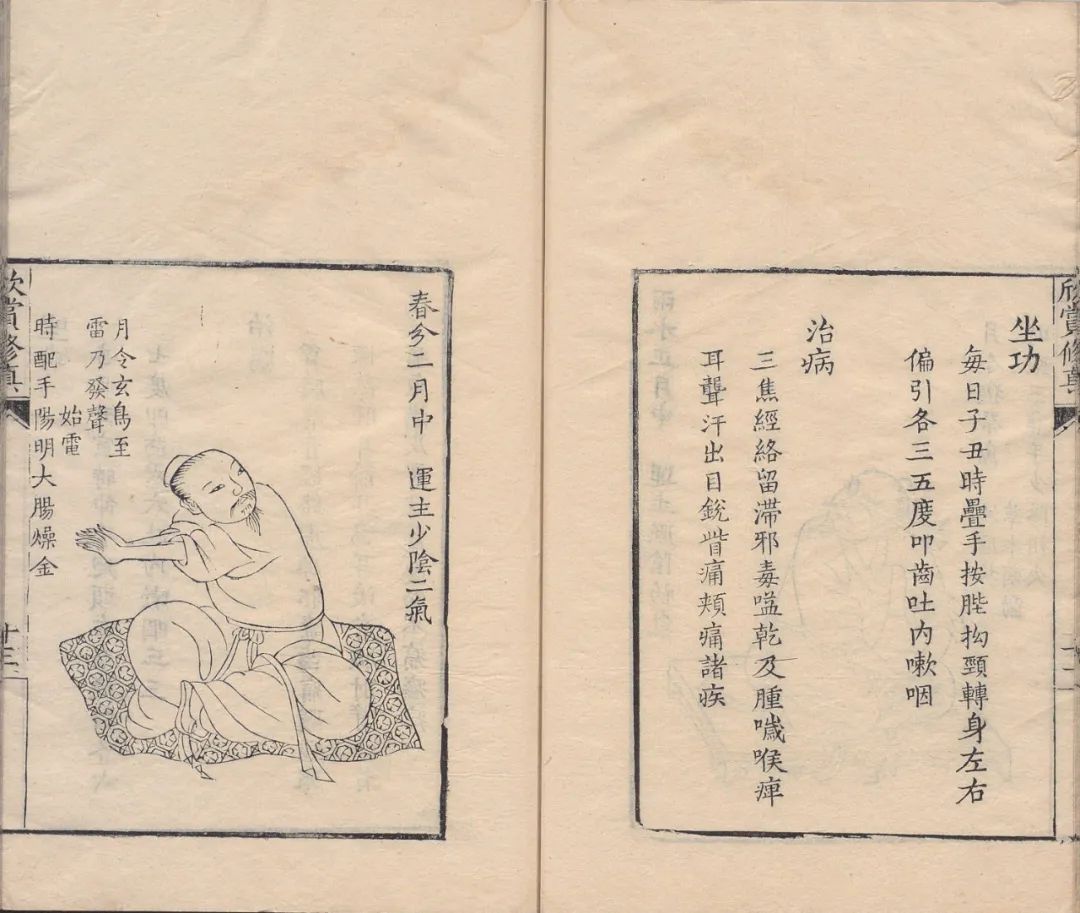 欣賞修真
坐功
每日子丑時疊手按䏶拗頸轉身左右
偏引各三五度叩齒吐内嗽咽
治病
三焦經絡留滯邪毒嗌乾及腫噦喉痺
耳聾汗出目銳眥痛頰痛諸疾
春分二月中 運主少陰二氣
月令玄鳥至
雷乃發聲
始電
時配手陽明大腸燥金
欣賞修真
十三